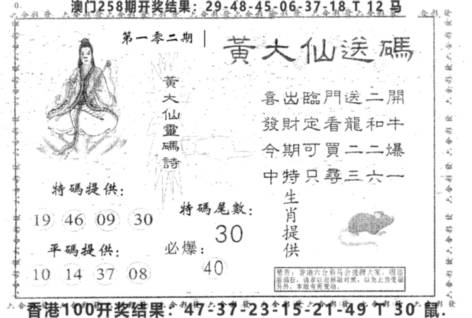 澳门258期开奖结果：29-48-45-06-37-18 T 12 马
第一零二期
黃大仙送碼
黃大仙靈碼詩
喜出臨門送二開
發財定看龍和牛
今期可買二二爆
中特只尋三六一
生肖提供
特碼提供：
19 46 09 30
平碼提供：
10 14 37 08
特碼尾數：
30
必爆：
40
香港100开奖结果：47-37-23-15-21-49 T 30 鼠.